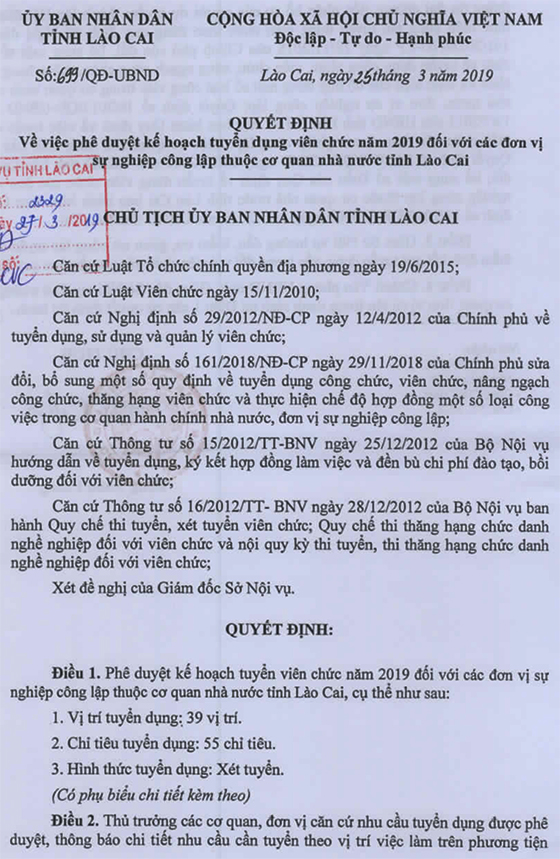 ỦY BAN NHÂN DÂN
TỈNH LÀO CAI
CỘNG HÒA XÃ HỘI CHỦ NGHĨA VIỆT NAM
Độc lập - Tự do - Hạnh phúc
Số: 699/QĐ-UBND
Lào Cai, ngày 25 tháng 3 năm 2019
QUYẾT ĐỊNH
Về việc phê duyệt kế hoạch tuyển dụng viên chức năm 2019 đối với các đơn vị
sự nghiệp công lập thuộc cơ quan nhà nước tỉnh Lào Cai
VỤ TỈNH LÀO CAI
2329
27/3/2019
số:
CHỦ TỊCH ỦY BAN NHÂN DÂN TỈNH LÀO CAI
Căn cứ Luật Tổ chức chính quyền địa phương ngày 19/6/2015;
Căn cứ Luật Viên chức ngày 15/11/2010;
Căn cứ Nghị định số 29/2012/NĐ-CP ngày 12/4/2012 của Chính phủ về
tuyển dụng, sử dụng và quản lý viên chức;
Căn cứ Nghị định số 161/2018/NĐ-CP ngày 29/11/2018 của Chính phủ sửa
đổi, bổ sung một số quy định về tuyển dụng công chức, viên chức, nâng ngạch
công chức, thăng hạng viên chức và thực hiện chế độ hợp đồng một số loại công
việc trong cơ quan hành chính nhà nước, đơn vị sự nghiệp công lập;
Căn cứ Thông tư số 15/2012/TT-BNV ngày 25/12/2012 của Bộ Nội vụ
hướng dẫn về tuyển dụng, ký kết hợp đồng làm việc và đền bù chi phí đào tạo, bồi
dưỡng đối với viên chức;
Căn cứ Thông tư số 16/2012/TT- BNV ngày 28/12/2012 của Bộ Nội vụ ban
hành Quy chế thi tuyển, xét tuyển viên chức; Quy chế thi thăng hạng chức danh
nghề nghiệp đối với viên chức và nội quy kỳ thi tuyển, thi thăng hạng chức danh
nghề nghiệp đối với viên chức;
Xét đề nghị của Giám đốc Sở Nội vụ.
QUYẾT ĐỊNH:
Điều 1. Phê duyệt kế hoạch tuyển viên chức năm 2019 đối với các đơn vị sự
nghiệp công lập thuộc cơ quan nhà nước tỉnh Lào Cai, cụ thể như sau:
1. Vị trí tuyển dụng: 39 vị trí.
2. Chỉ tiêu tuyển dụng: 55 chỉ tiêu.
3. Hình thức tuyển dụng: Xét tuyển.
(Có phụ biểu chi tiết kèm theo)
Điều 2. Thủ trưởng các cơ quan, đơn vị căn cứ nhu cầu tuyển dụng được phê
duyệt, thông báo chi tiết nhu cầu cần tuyển theo vị trí việc làm trên phương tiện